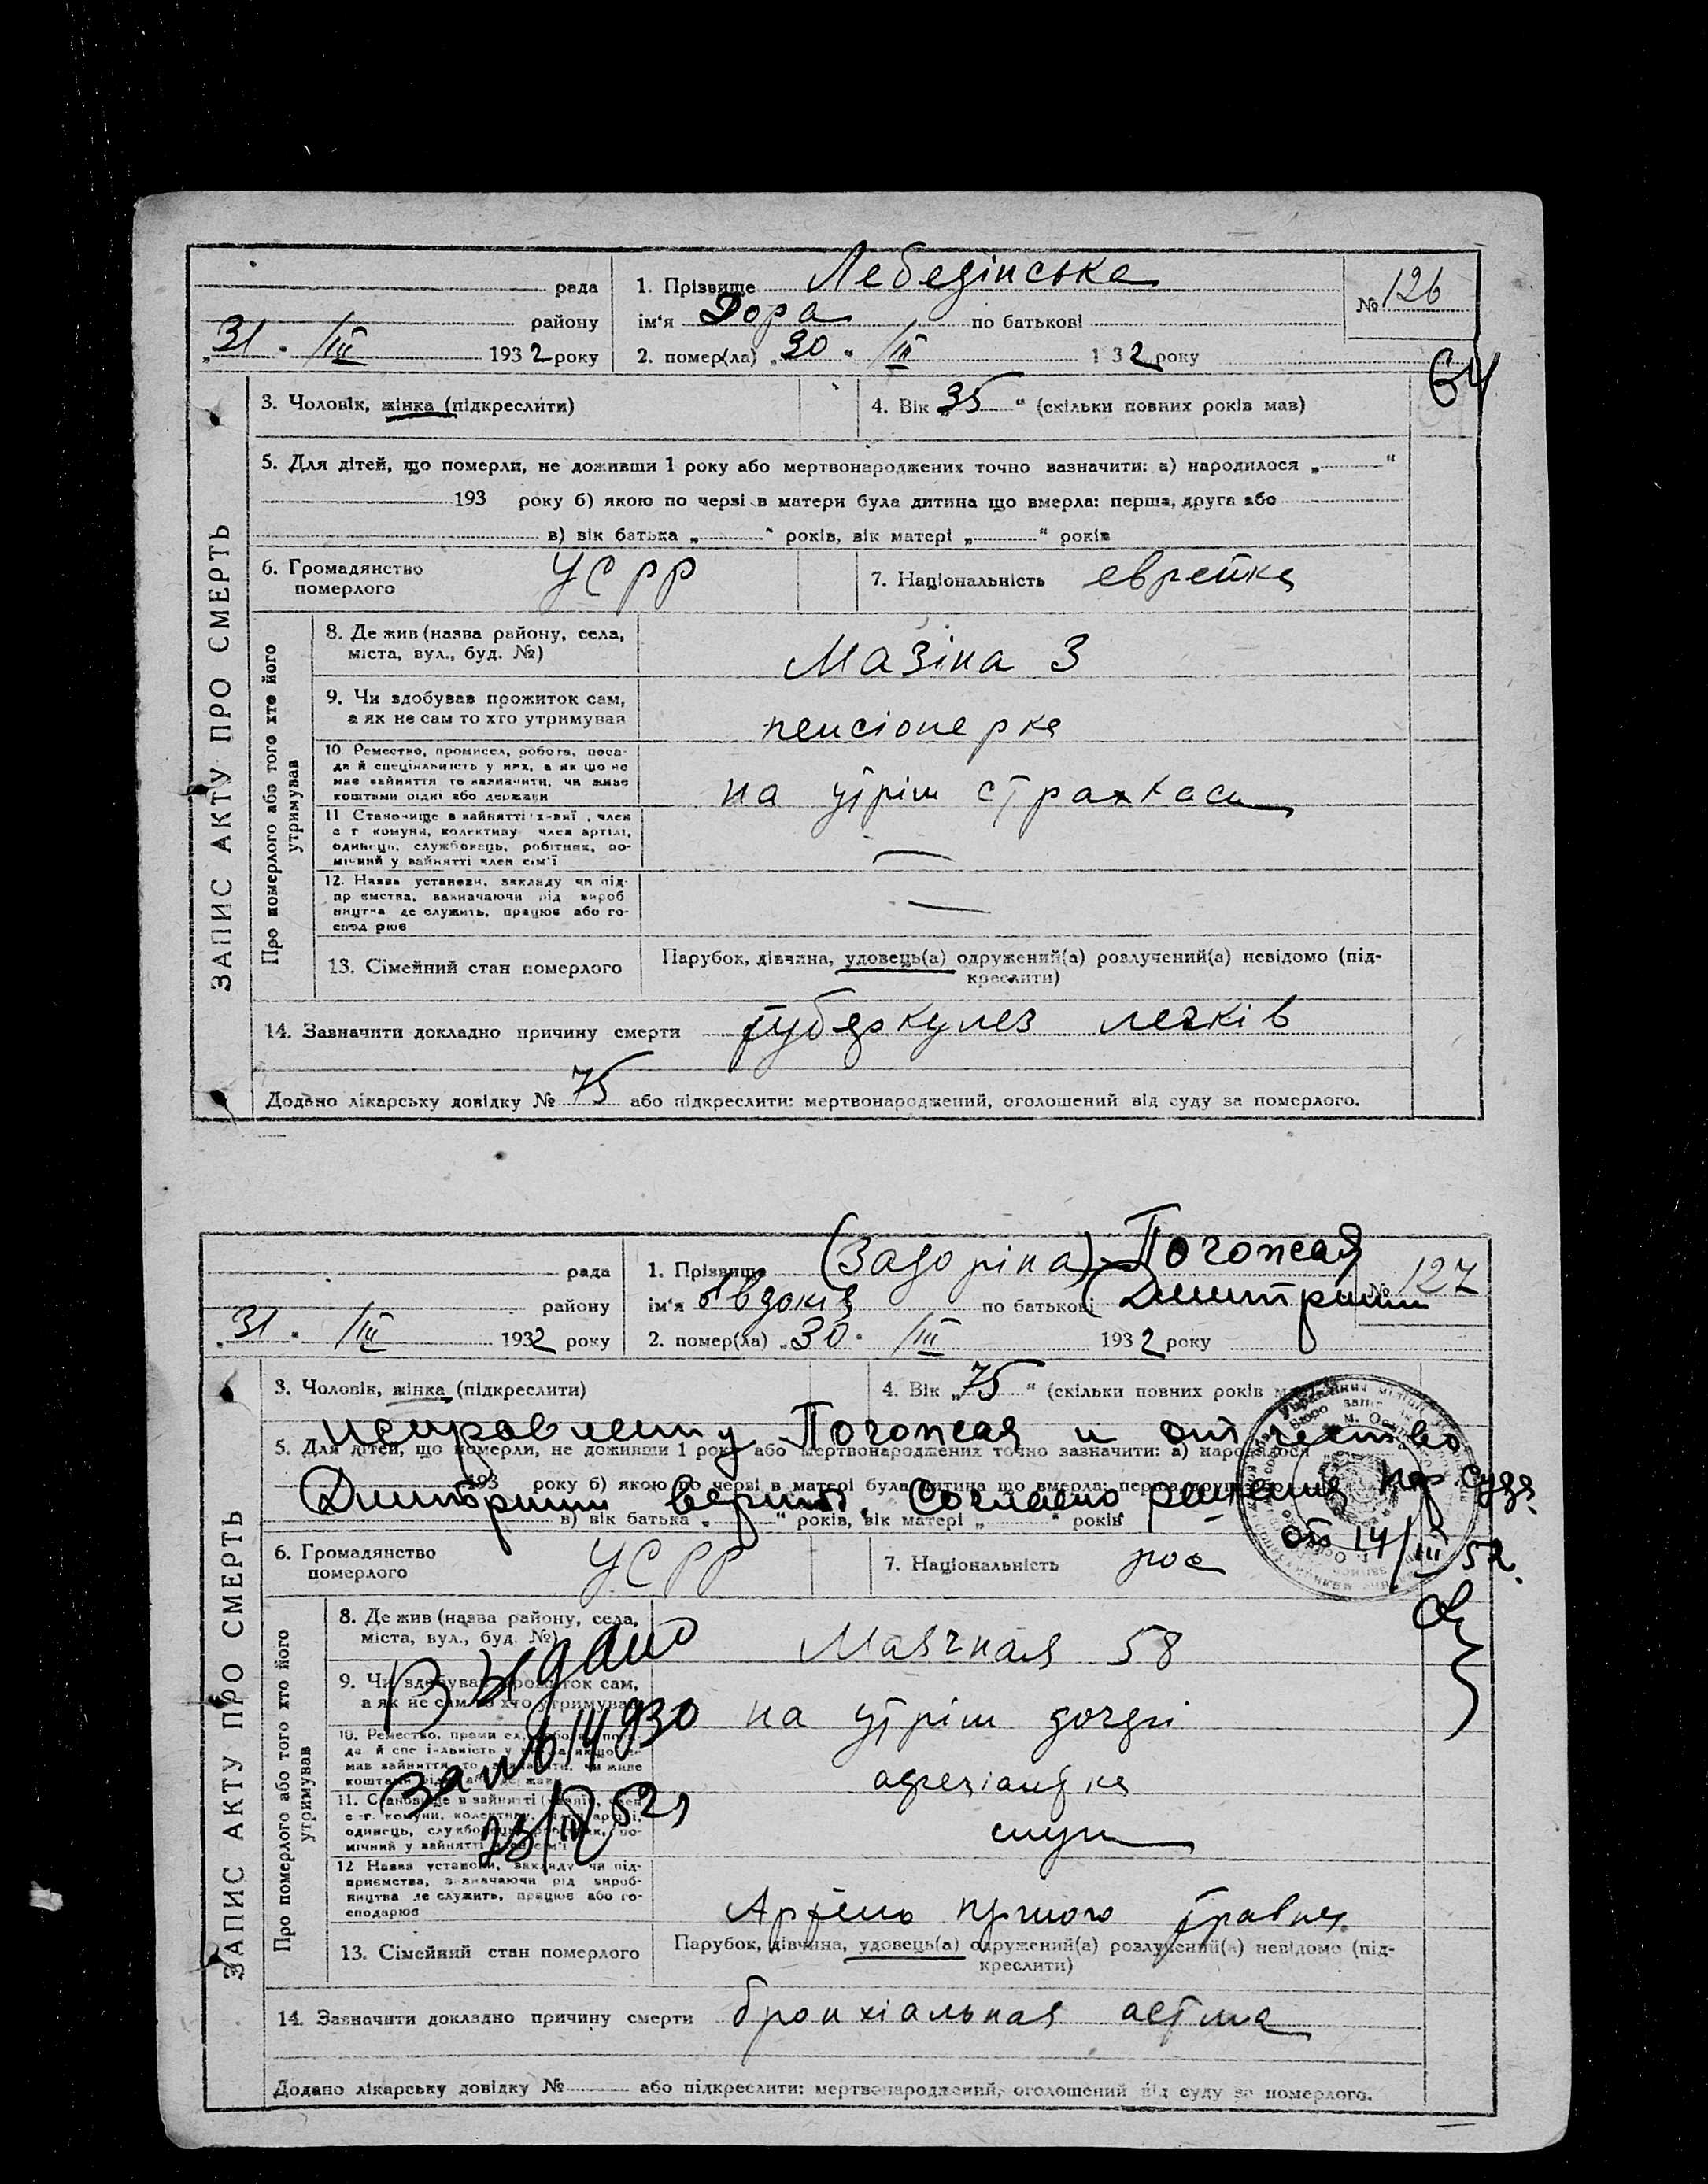 рада
1. Прізвище Лебедінська
№ 126
району
ім'я Дора по батькові
„31" III 1932 року
2. помер(ла) „30" III 1 32 року
64
ЗАПИС АКТУ ПРО СМЕРТЬ
3. Чоловік, жінка (підкреслити)
4. Вік „35" (скільки повних років мав)
5. Для дітей, що померли, не доживши 1 року або мертвонароджених точно зазначити: а) народилося „ "
193 року б) якою по черзі в матери була дитина що вмерла: перша, друга або
в) вік батька „ " років, вік матері „ " років
6. Громадянство померлого УСРР
7. Національність еврейка
Про померлого або того хто його утримував
8. Де жив (назва району, села,
міста, вул., буд. №)
Мазіна 3
9. Чи здобував прожиток сам,
а як не сам то хто утримував
пенсіонерка
10. Ремество, промисел, робота, поса-
да й спеціяльність у них, а як що не
має зайняття то зазначити, чи живе
коштами рідні або держави
на утрім страхкаси
11 Становище в зайнятті член
с г комуни, колективу член артілі,
одинець, службовець, робітник, по-
мічний у зайнятті член сім'ї
—
12. Назва установи, закладу чи під-
пр ємства, зазначаючи рід вироб
ництва де служить, працює або го-
спод рює
—
13. Сімейний стан померлого
Парубок, дівчина, удовець(а) одружений(а) розлучений(а) невідомо (під-
креслити)
14. Зазначити докладно причину смерти туберкулез легків
Додано лікарську довідку № 75 або підкреслити: мертвонароджений, оголошений від суду за померлого.
рада
1. Прізвище (Задоріна) Погожая
№ 127
району
ім'я Євдокія по батькові (Дмитриит
„31" III 1932 року
2. помер(ла) „30" III 1932 року
ЗАПИС АКТУ ПРО СМЕРТЬ
3. Чоловік, жінка (підкреслити)
4. Вік „75" (скільки повних років мав)
исправленну Погожая и отчество
5. Для дітей, що померли, не доживши 1 року або мертвонароджених точно зазначити: а) народилося
193 року б) якою по черзі в матері була дитина що вмерла: перша, друга
Дмитриит верить. Согласно решения нар суда
в) вік батька „ " років, вік матері „ " років
от 14/III 52.
6. Громадянство померлого УСРР
7. Національність рос
Про померлого або того хто його утримував
8. Де жив (назва району, села,
міста, вул., буд. №)
Маячная 58
Выдано
9. Чи здобував прожиток сам,
а як не сам то хто утримував
на утрім дочки
10. Ремество, проми ел, робота, поса-
да й спе і-льність у них, а якщо не-
має зайняття то зазначити, чи живе
коштами рідні або держави
23/IV 52 г
11. Становище в зайнятті член
с -г. комуни, колективу, член артілі,
одинець, службовець, робітник, по-
мічний у зайнятті член сім'ї
служ
12 Назва установи, закладу чи під-
приємства, зазначаючи рід вироб-
ництва де служить, працює або го-
сподарює
Артіль першого травня
13. Сімейний стан померлого
Парубок, дівчина, удовець(а) одружений(а) розлучений(а) невідомо (під-
креслити)
14. Зазначити докладно причину смерти бронхіальная астма
Додано лікарську довідку № або підкреслити: мертвонароджений, оголошений від суду за померлого.